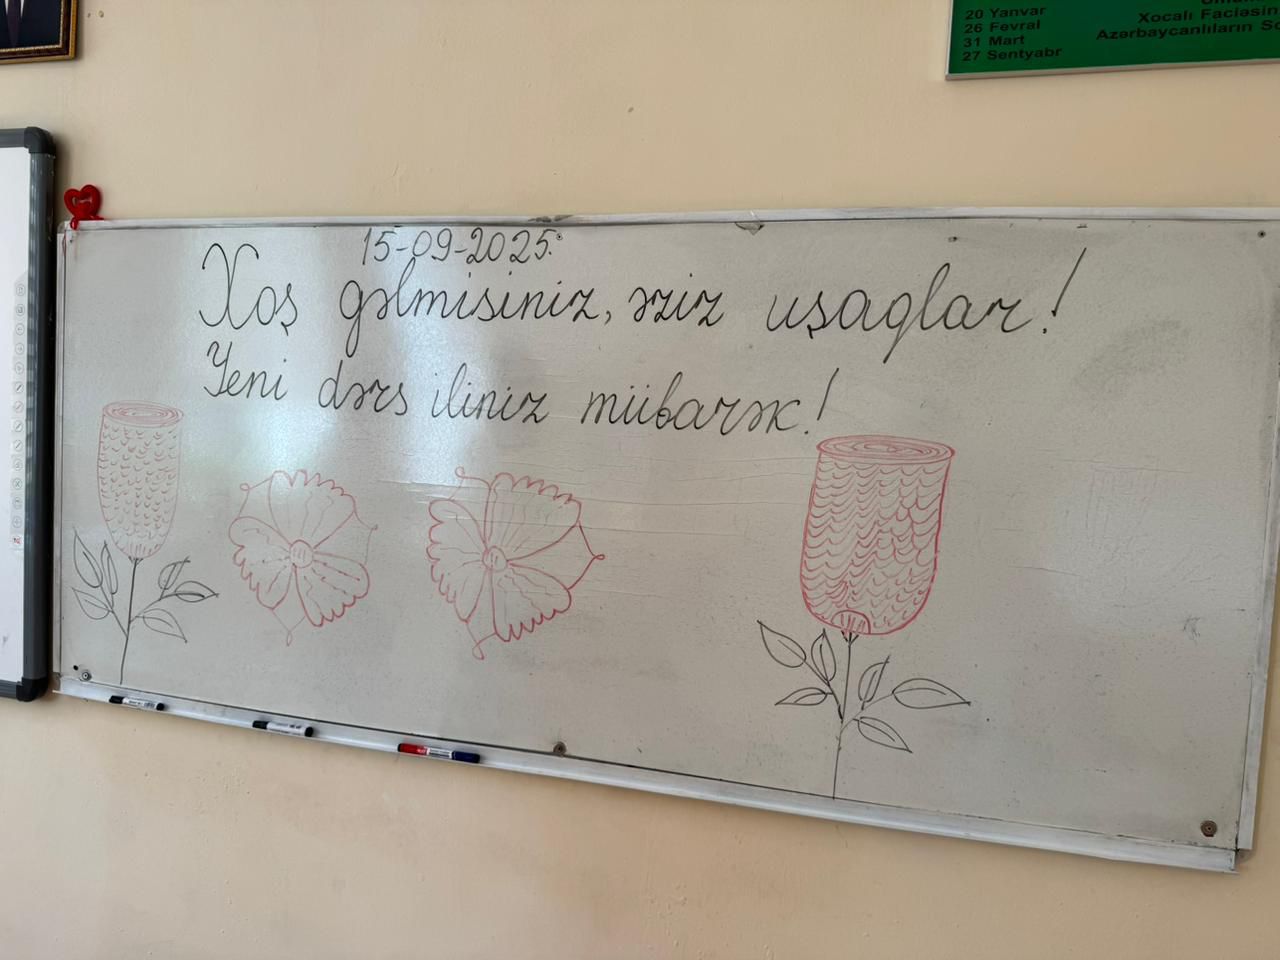 20 Yanvar
26 Fevral Xocalı Faciəsin
31 Mart Azərbaycanlıların
27 Sentyabr
15-09-2025.
Xoş gəlmisiniz, əziz uşaqlar!
Yeni dərs iliniz mübarək!